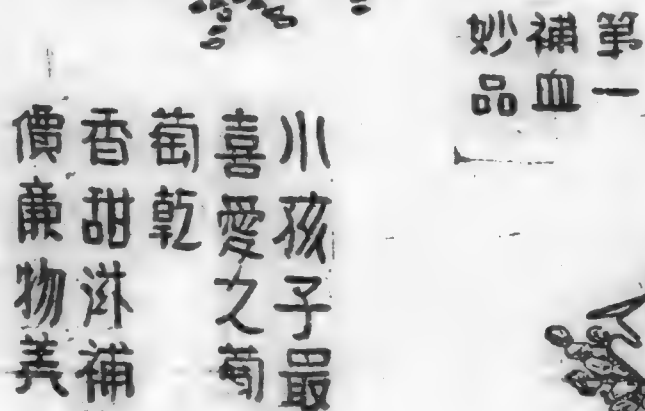 第一
補血
妙品
小孩子最
喜愛之萄
萄乾
香甜滋補
價廉物美